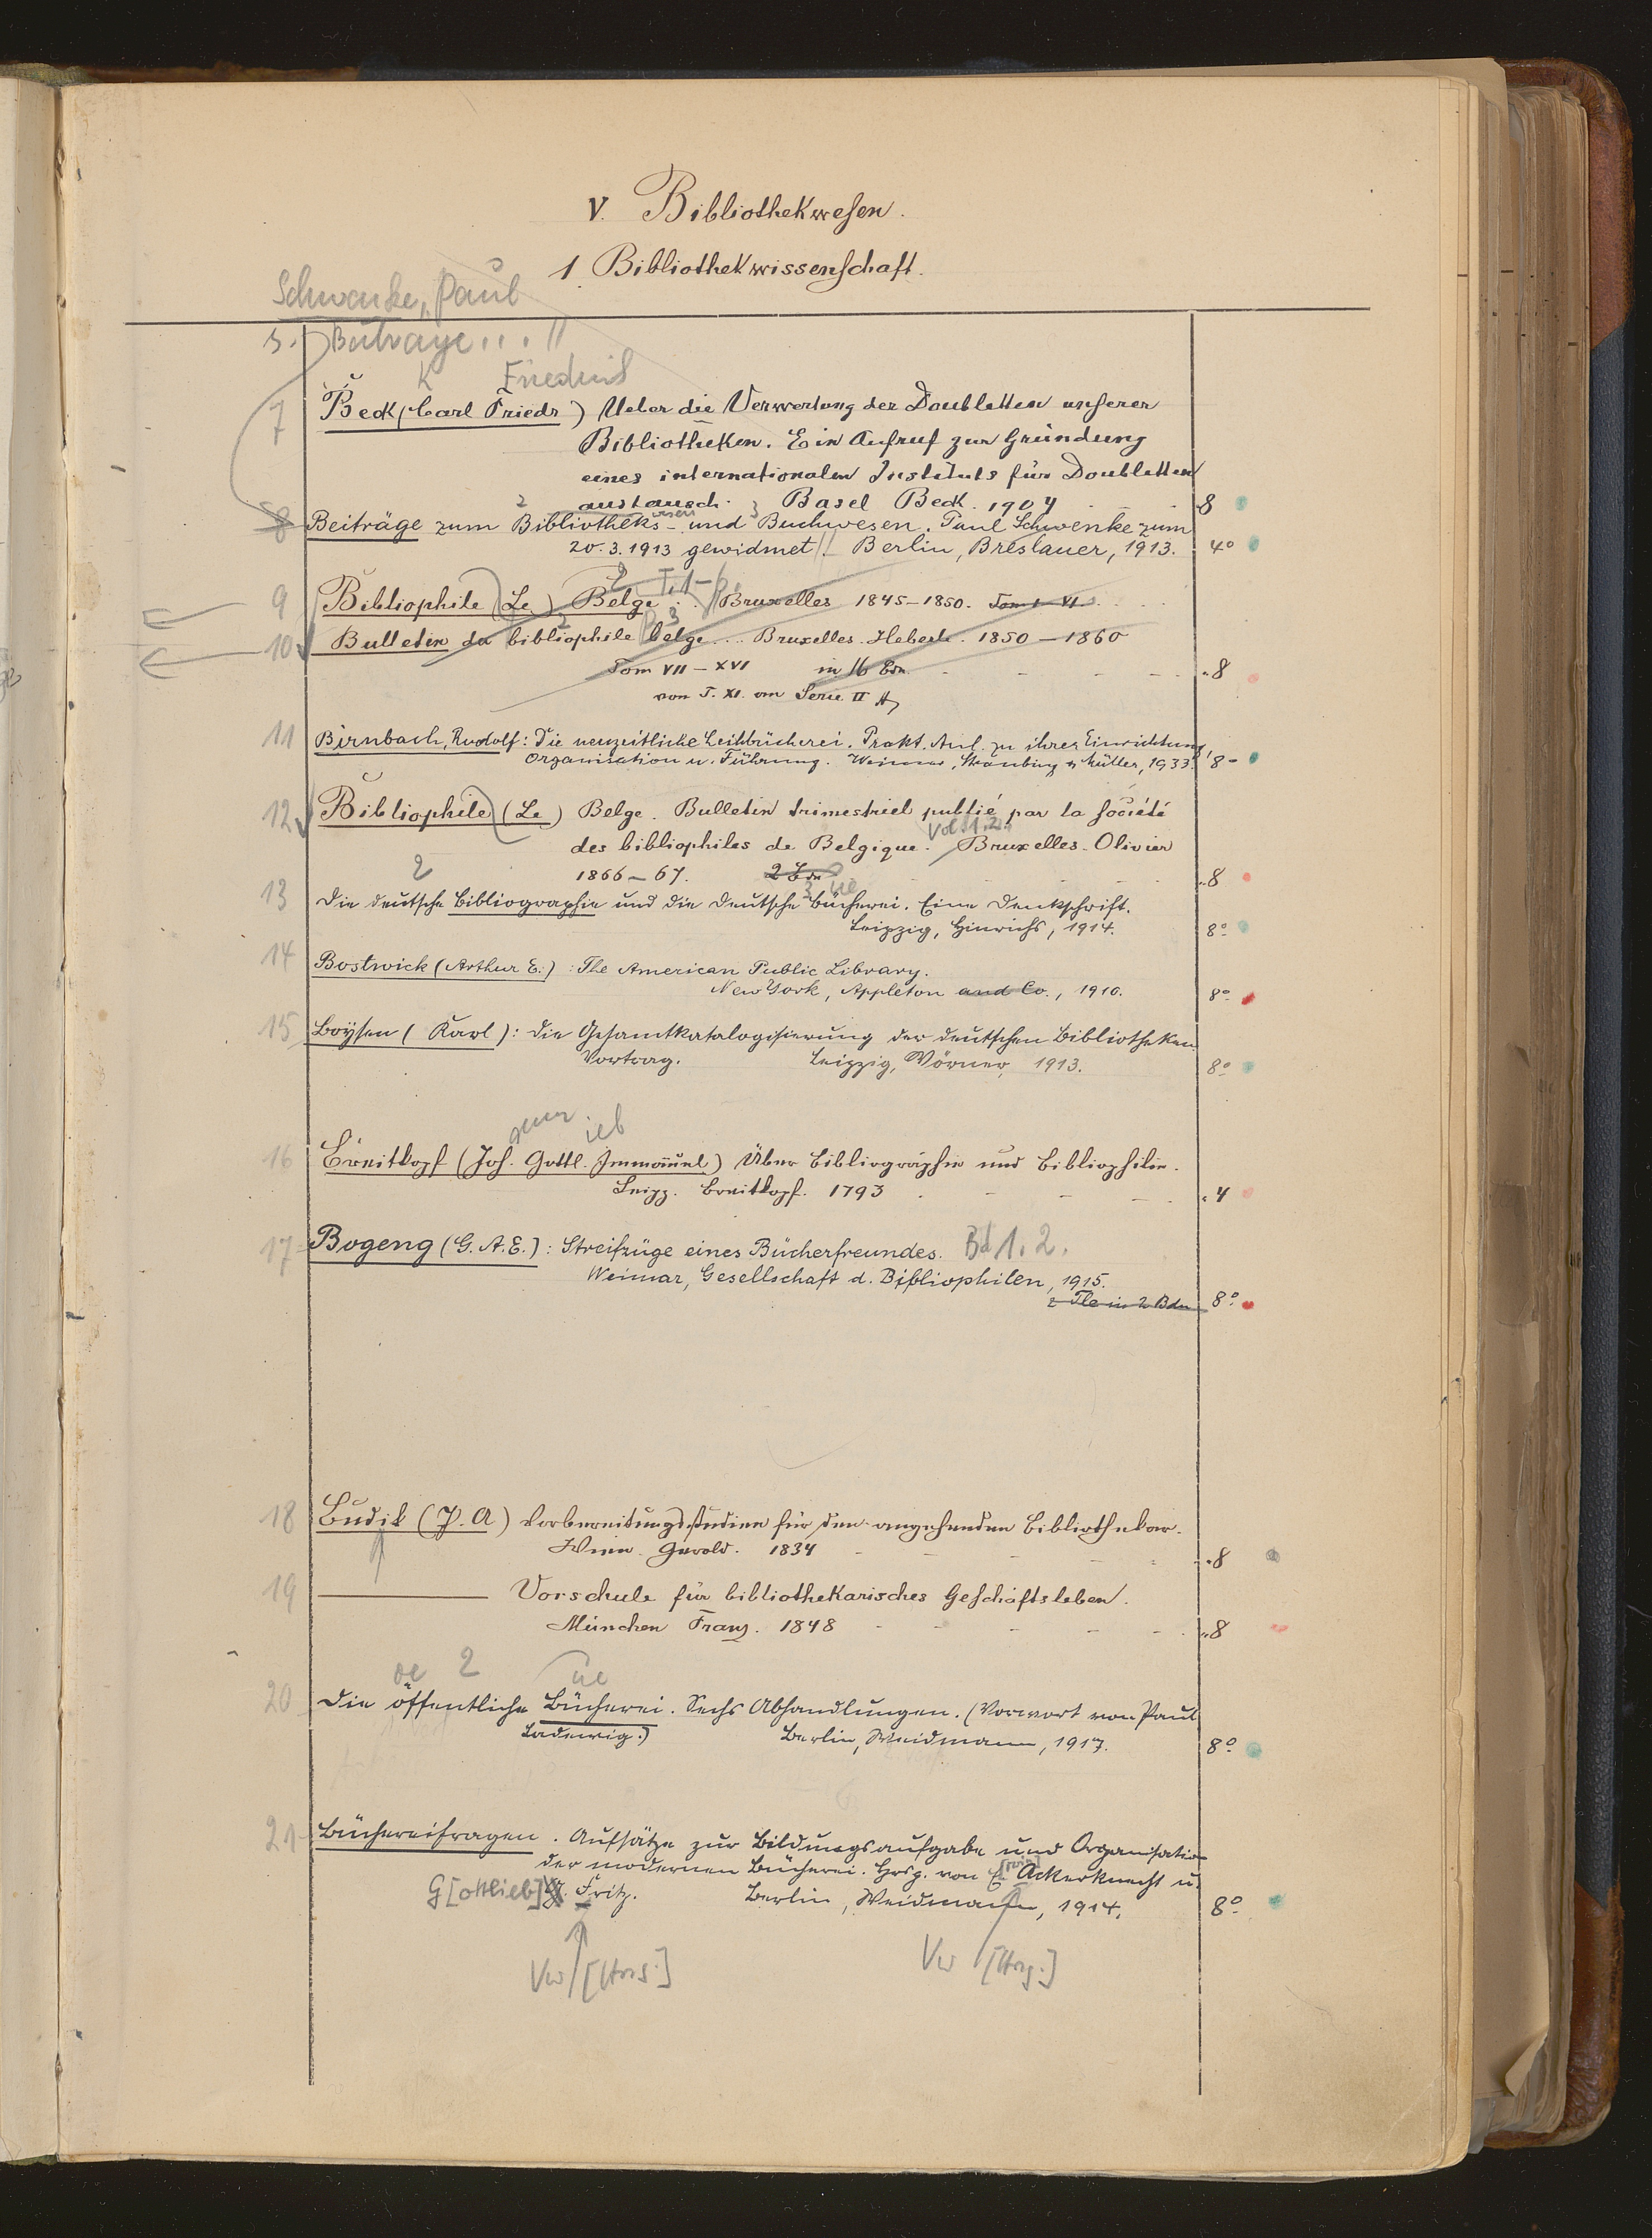 V. Bibliothekwesen.
1. Bibliothekwissenschaft.
Schwenke, Paul
s. Beiträge...
K Friedrich
7 Beck (Carl Friedr) Ueber die Verwertung der Doubletten unserer
Bibliotheken. Ein Aufruf zur Gründung
eines internationalen Instituts für Doubletten
austausch. Basel Beck. 1904 8
8 Beiträge zum Bibliotheks- und Buchwesen. Paul Schwenke zum
wesen
20.3.1913 gewidmet. Berlin, Breslauer, 1913. 4°
2 T. 1-6.
9 Bibliophile (Le) Belge... Bruxelles 1845-1850. Tom I-VI
10 Bulletin du bibliophile belge... Bruxelles. Heberle. 1850-1860
Tom VII-XVI in 16 Bdn. 8
von T. XI. an Serie II
11 Birnbach, Rudolf: Die neuzeitliche Leihbücherei. Prakt. Anl. zu ihrer Einrichtung,
Organisation u. Führung. Weimar, Straubing & Müller, 1933. 8°
12 Bibliophile (Le) Belge. Bulletin trimestriel publié par la société
Vol. 1.2.
des bibliophiles de Belgique. Bruxelles. Olivier
1866-67. 2 Bde 8
2 3 ue
13 Die deutsche Bibliographie und die deutsche Bücherei. Eine Denkschrift.
Leipzig, Hinrichs, 1914. 8°
14 Bostwick (Arthur E.): The American Public Library.
New York, Appleton and Co., 1910. 8°
15 Boysen (Karl): Die Gesamtkatalogisierung der deutschen Bibliotheken.
Vortrag. Leipzig, Wörner, 1913. 8°
ieb
16 Breitkopf (Joh. Gottl. Immanuel) Über Bibliographie und Bibliophilie.
Leipz. Breitkopf. 1793 4
17 Bogeng (G. A. E.): Streifzüge eines Bücherfreundes. Bd 1. 2.
Weimar, Gesellschaft d. Bibliophilen, 1915.
2 Tle in 2 Bdn 8°
18 Budik (P. A) Vorbereitungsstudien für den angehenden Bibliothekar.
Wien. Gerold. 1834 8
19 ——— Vorschule für bibliothekarisches Geschäftsleben.
München Franz. 1848 8
oe 2 ue
20 Die öffentliche Bücherei. Sechs Abhandlungen. (Vorwort von Paul
Ladewig.) Berlin, Weidmann, 1917. 8°
21 Büchereifragen. Aufsätze zur Bildungsaufgabe und Organisation
der modernen Bücherei. Hrsg. von E. Ackerknecht u.
[rwin]
G[ottlieb] G. Fritz. Berlin, Weidmann, 1914. 8°
Vw [Hrsg.] Vw [Hrsg.]